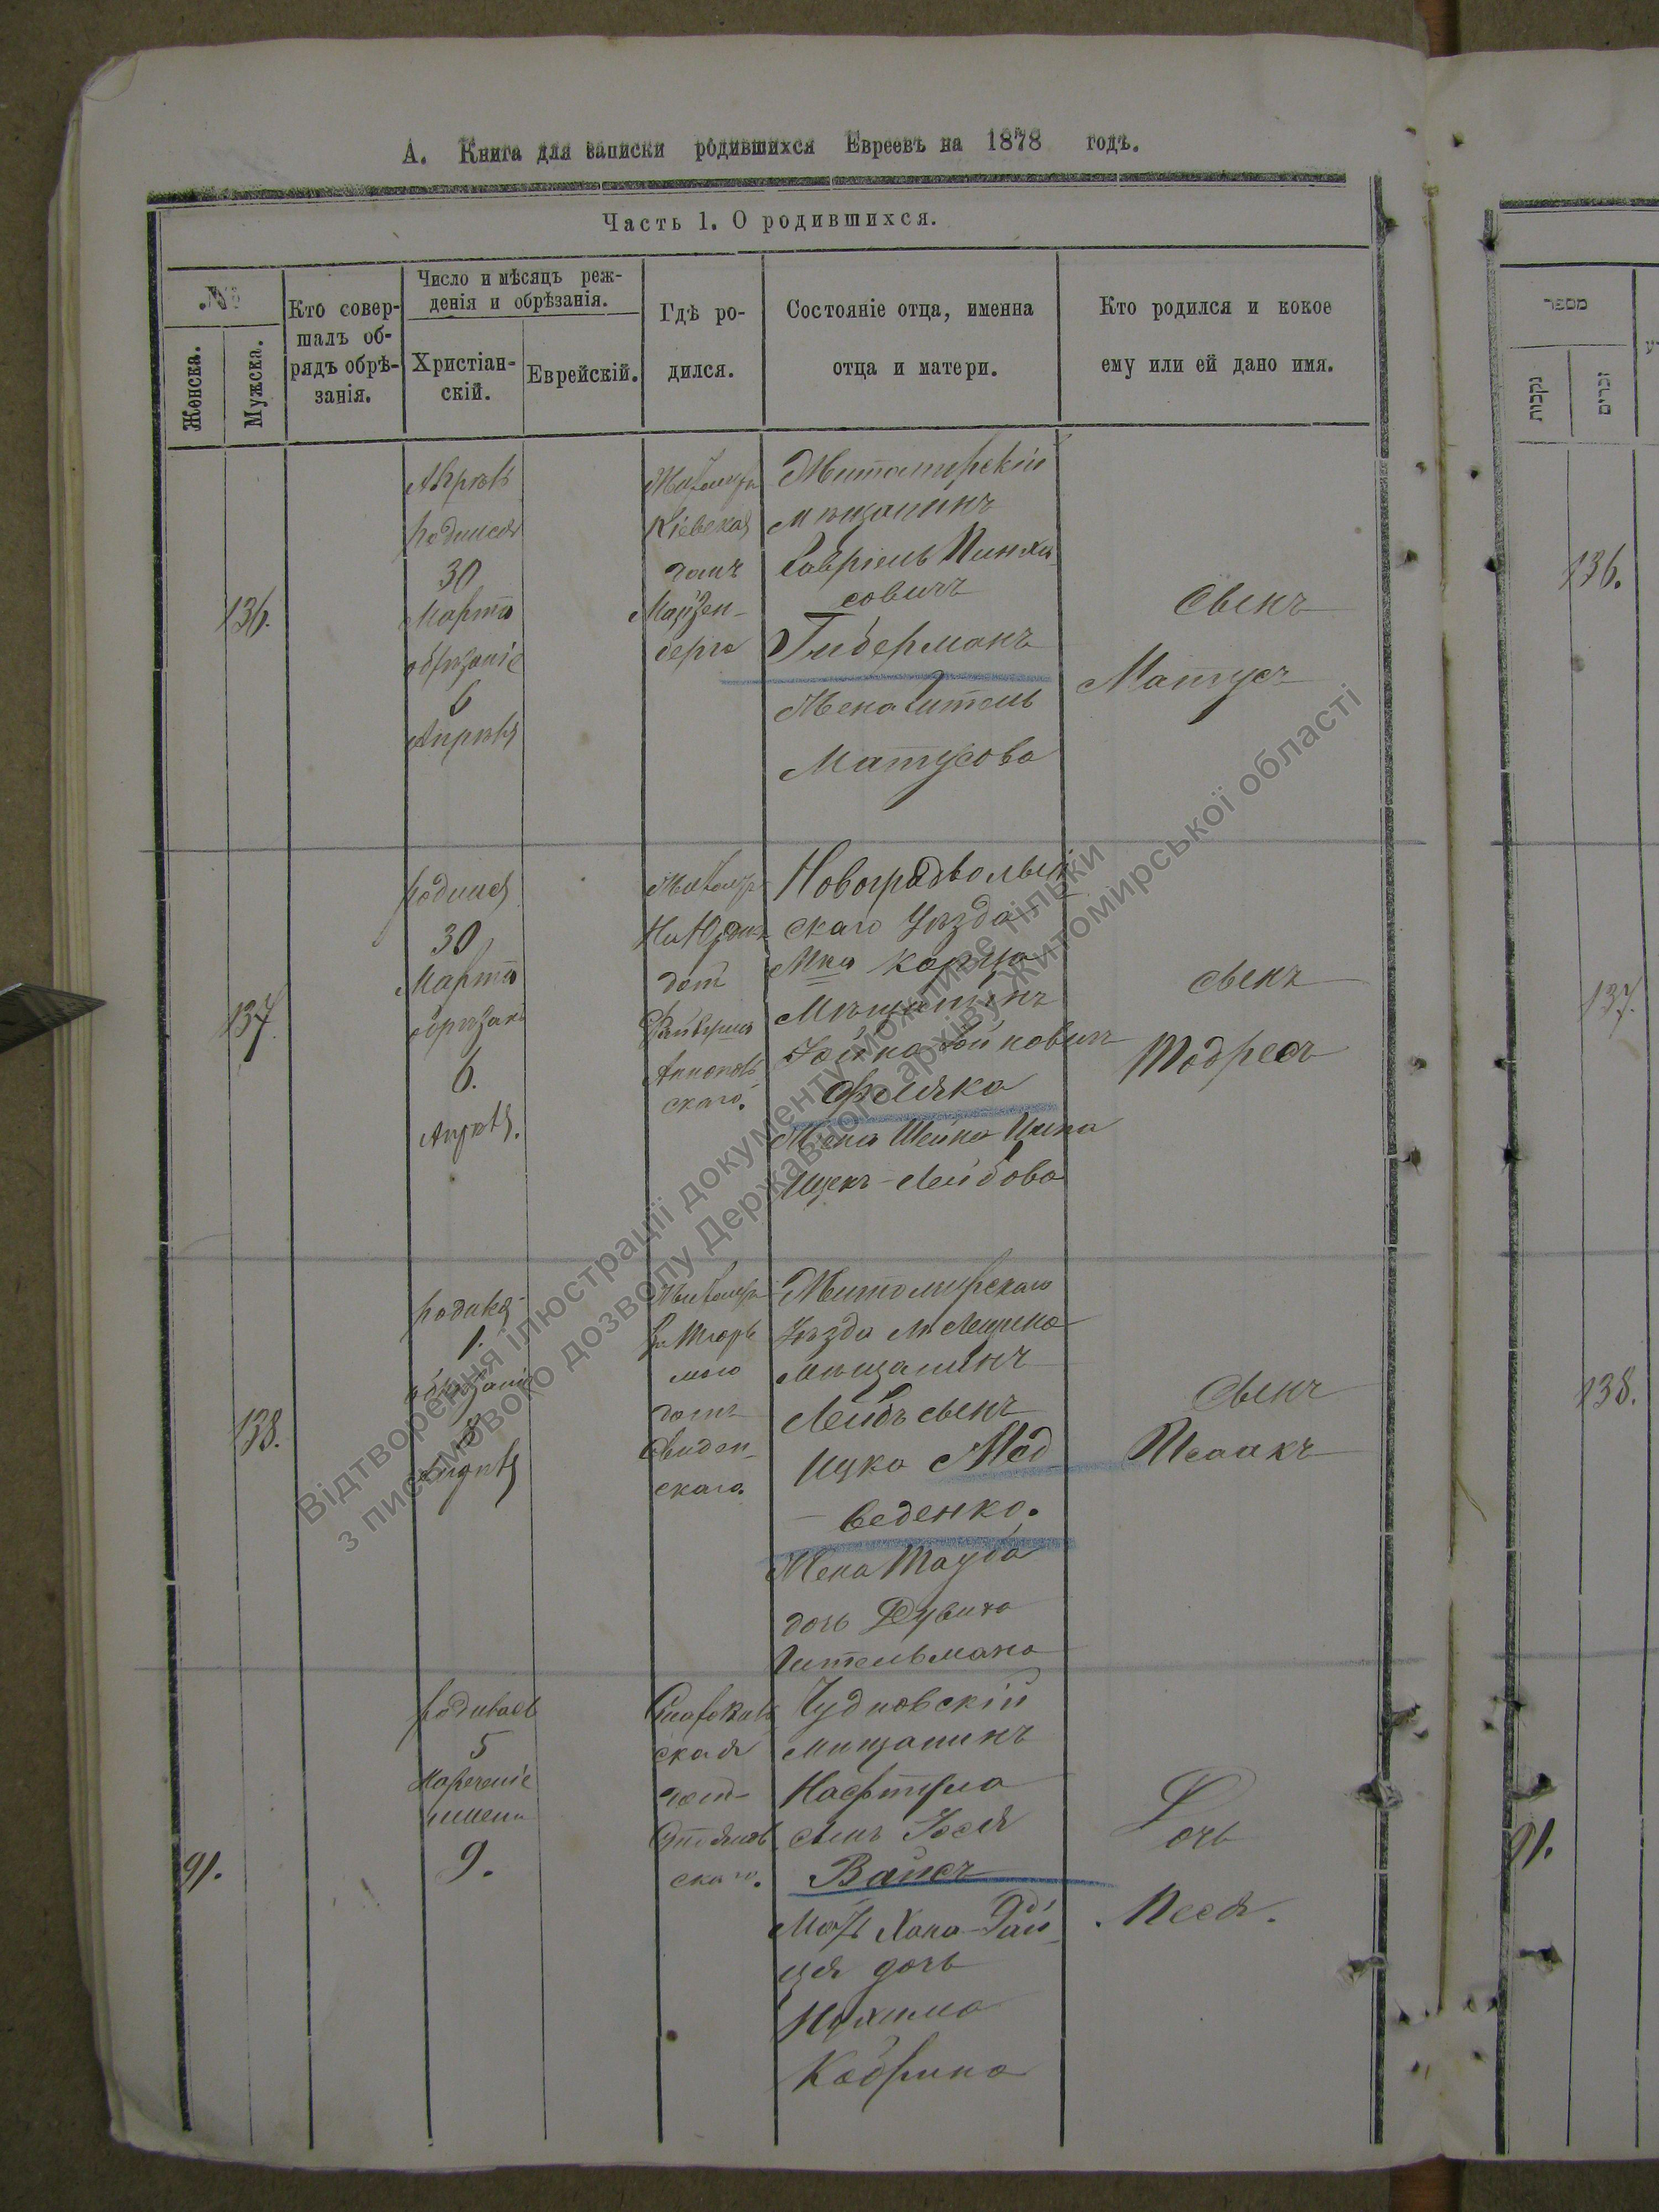 А. Книга для записки родившихся Евреевъ на 1878 годъ.
Часть 1. О родившихся.
№
Женска.
Мужска.
Кто совер-
шалъ об-
рядъ обрѣ-
занія.
Число и мѣсяцъ рож-
денія и обрѣзанія.
Христіан-
скій.
Еврейскій.
Гдѣ ро-
дился.
Состояніе отца, именна
отца и матери.
Кто родился и кокое
ему или ей дано имя.
מספר
נקבות
זכרים
136.
родился
30
Марта
обрѣзаніе
6
Апрѣля
Житомиръ
Кіевская
домъ
Майзен-
берга
Житомирскій
мѣщанинъ
Гавріель Пинха-
совичъ
Гиберманъ
Жена Гитель
Матусова
сынъ
Матусъ
136.
137.
родился
30
Марта
обрѣзаніе
6.
Апрѣля.
Житомиръ
домъ
скаго.
Новоградволын-
скаго Уѣзда
Мка Корца
Мѣщанинъ
Фляка
Жена Шейна
Ицекъ-Лейбова
сынъ
Тодресъ
137.
138.
родился
1.
обрѣзаніе
8
Апрѣля
Житомиръ
домъ
скаго.
Житомирскаго
Уѣзда М. Лещина
мѣщанинъ
Лейбъ сынъ
Ицка Мед-
веденко.
Жена Тауба
дочь Рувина
Гительмана
сынъ
Исаакъ
138.
91.
родилась
5
Нареченіе
имени
9.
ская
домъ
скаго.
Чудновскій
мѣщанинъ
Нафтула
сынъ Іося
Вайсъ
Мать Хана-Рай-
ця дочь
Нухима
Кадрина
Дочь
Песя.
91.
Відтворення ілюстрації документу можливе тільки
з письмового дозволу Державного архіву Житомирської області